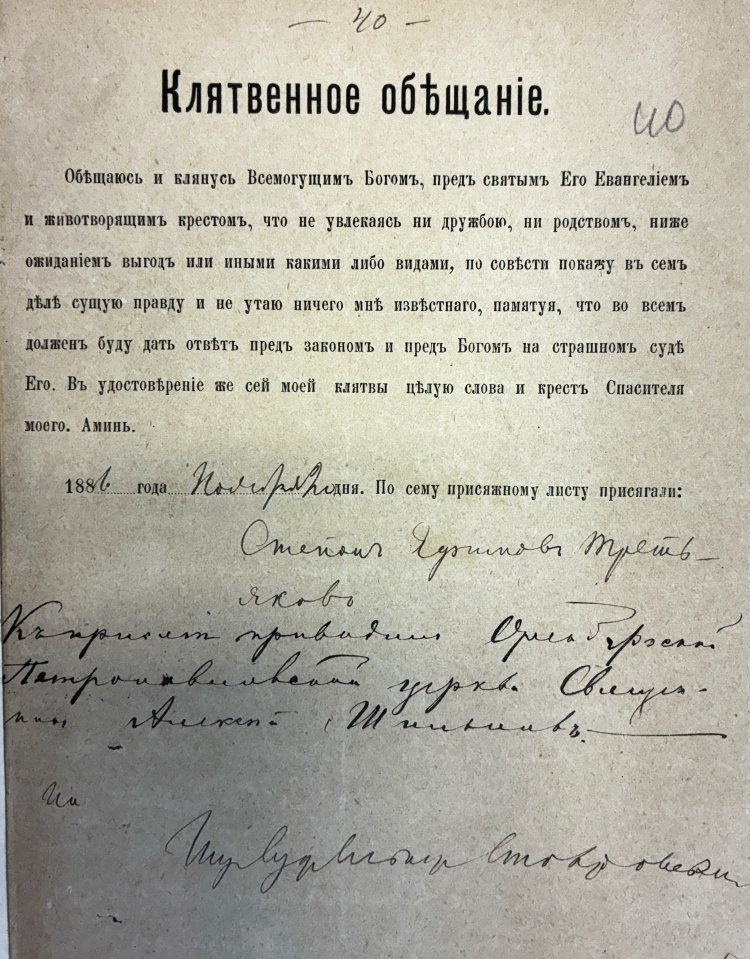 — 40 —
Клятвенное обѣщаніе.
40
Обѣщаюсь и клянусь Всемогущимъ Богомъ, предъ святымъ Его Евангеліемъ
и животворящимъ крестомъ, что не увлекаясь ни дружбою, ни родствомъ, ниже
ожиданіемъ выгодъ или иными какими либо видами, по совѣсти покажу въ семъ
дѣлѣ сущую правду и не утаю ничего мнѣ извѣстнаго, памятуя, что во всемъ
долженъ буду дать отвѣтъ предъ закономъ и предъ Богомъ на страшномъ судѣ
Его. Въ удостовѣреніе же сей моей клятвы цѣлую слова и крестъ Спасителя
моего. Аминь.
1886 года Ноября дня. По сему присяжному листу присягали:
Степанъ Третъ-
яковъ
Къ присягѣ приводилъ Оренбургской
Петропавловской церкви Священ-
никъ Алексей